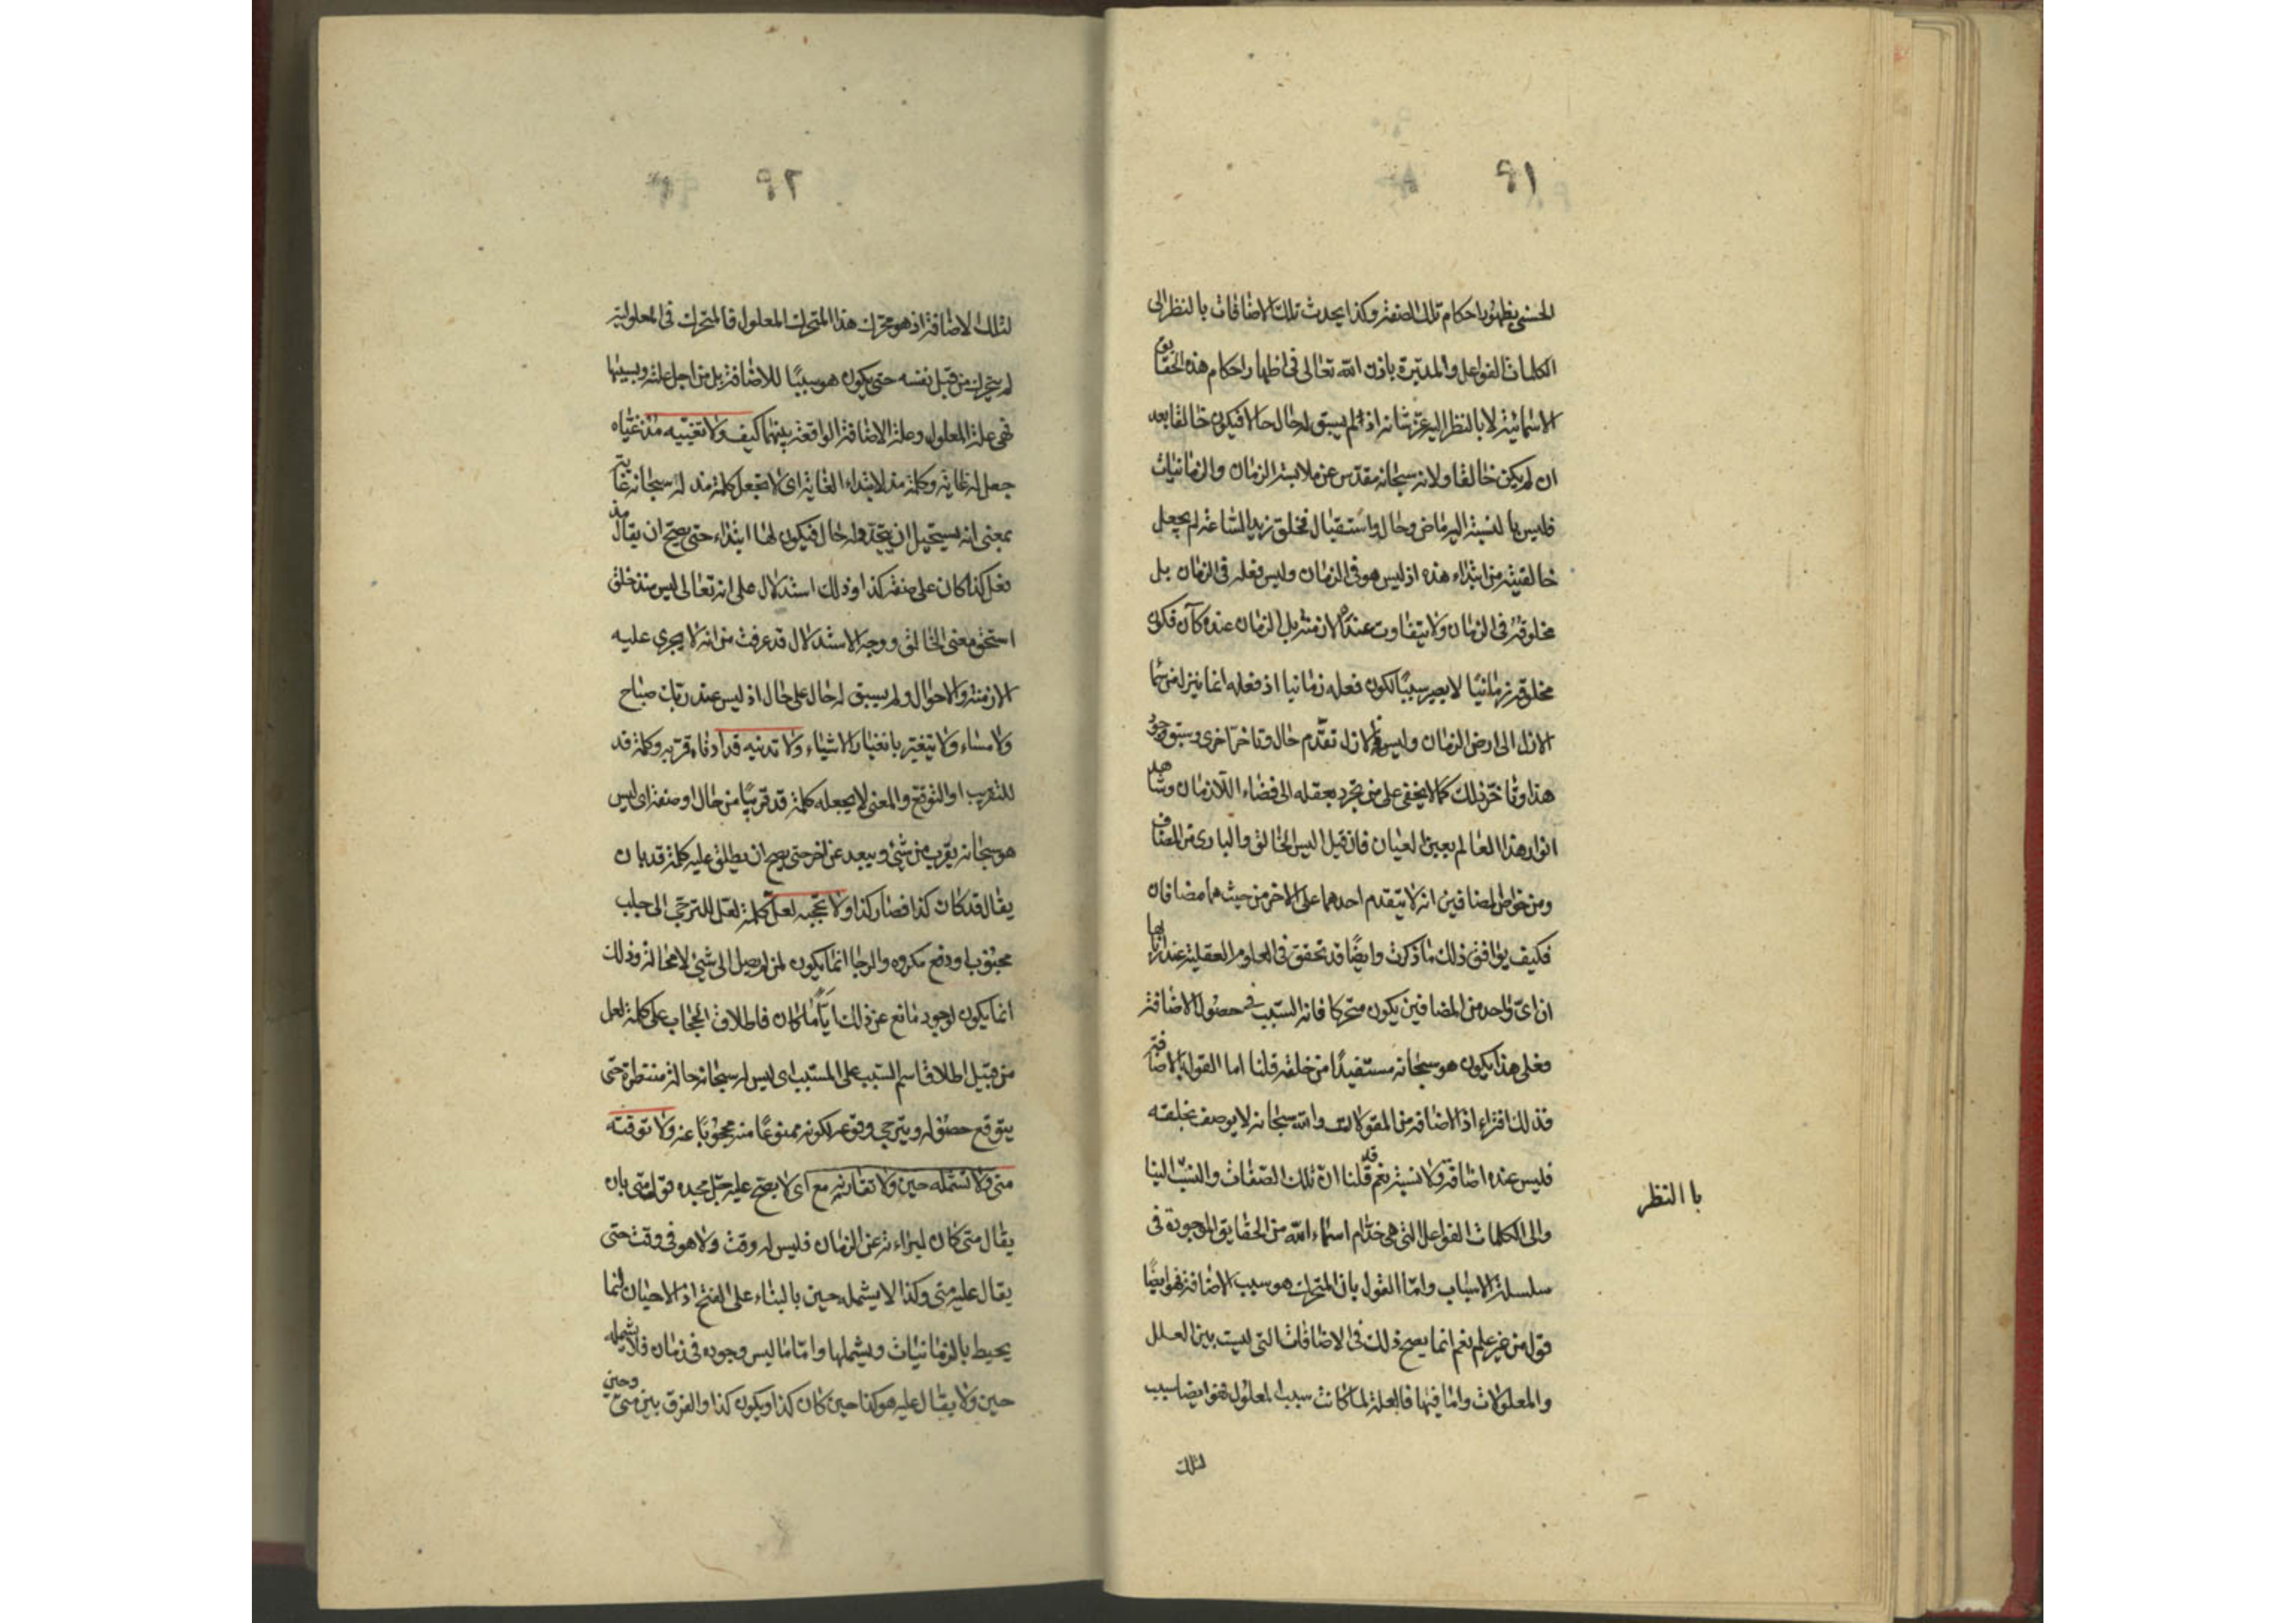 ٩١
الحسنى يظهرو باحكام تلك الصفة وكذا يحدث تلك الاضافات بالنظر الى
الكلمات الفواعل والمدبّرة باذن الله تعالى فى اظهار احكام هذه الحقايق
الاسمائية لا بالنظر اليه عزّ شانه اذ لم يسبق له حال حالا فيكون خالقا بعد
ان لم يكن خالقا ولانه سبحانه مقدّس عن ملابسة الزمان والزمانيات
فليس بالنسبة اليه ماض وحال واستقبال فخلق زيد الساعة لم يجعل
خالقيته من ابتداء هذه اذ ليس هو فى الزمان وليس فعله فى الزمان بل
مخلوقه فى الزمان ولا يتفاوت عنده الازمنة بل الزمان عنده كآن فكون
مخلوقه زمانيّا لا يصير سببًا لكون فعله زمانيا اذ فعله انما ينزل من سما
الازل الى ارض الزمان وليس فى الازل تقدّم حال وتاخر اخرى وسبق وجود
هذا وتاخّر ذلك كما لا يخفى على من تجرد بعقله الى فضاء اللازمان وشاهد
انوار هذا العالم بعين العيان فان قيل اليس الخالق والبارى من المضاف
ومن خواص المضافين انه لا يتقدم احدهما على الاخر من حيث هما مضافان
فكيف يوافق ذلك ما ذكرت وايضًا قد تحقق فى العلوم العقلية عند اربابها
ان اىّ واحد من المضافين يكون متحركا فانه السّبب فى حصول الاضافة
فعلى هذا يكون هو سبحانه مستفيدًا من خلقه قلنا اما القول بالاضافة
فذلك افتراء اذ الاضافة من المقولات والله سبحانه لا يوصف بخلقه
فليس عنده اضافة ولا نسبة نعم قد قلنا انّ تلك الصّفات والنسب الينا
با النظر
والى الكلمات الفواعل التى هى خدّام اسماء الله من الحقايق الموجودة فى
سلسلة الاسباب وامّا القول بان المتحرك هو سبب الاضافة فهو ايضًا
قول من غير علم نعم انما يصح ذلك فى الاضافات التى ليست بين العلل
والمعلولات واما فيها فالعلة لما كانت سبب المعلول فهو ايضا سبب
لتلك
٩٢
لتلك الاضافة اذ هو محرّك هذا المتحرك المعلول فالمتحرك فى المعلولية
لم يتحرك من قبل نفسه حتى يكون هو سببًا للاضافة بل من اجل علته وبسببها
فهى علة المعلول وعلة الاضافة الواقعة بينهما كيف ولا تغيّيه مذ غيّاه
جعل له غاية وكلمة مذ لابتداء الغاية اى لا تجعل كلمة مذ له سبحانه غاية
بمعنى انه يستحيل ان يتجدّد له حال فيكون لها ابتداء حتى يصح ان يقال مذ
فعل كذا كان على صفة كذا وذلك استدلال على انه تعالى ليس منذ خلق
استحق معنى الخالق ووجه الاستدلال قد عرفت من انه لا يجرى عليه
الازمنة والاحوال ولم يسبق له حال على حال اذ ليس عند ربّك صباح
ولا مساء ولا يتغير بانغيار الاشياء ولا تدنيه قد ادناه قربه وكلمة قد
للتقريب او التوقع والمعنى لا يجعله كلمة قد قريبًا من حال او صفة اى ليس
هو سبحانه يقرب من شئ ويبعد عن اخر حتى يصح ان يطلق عليه كلمة قد بان
يقال قد كان كذا فصار كذا ولا تحجبه لعلّ كلمة لعلّ للترجّى الى جلب
محبوب او دفع مكروه والرجا انما يكون لمن لم يصل الى شئ لا محالة وذلك
انما يكون لوجود مانع عن ذلك ايّاما كان فاطلاق الحجاب على كلمة لعل
من قبيل اطلاق اسم السّبب على المسبّب اى ليس له سبحانه حالة منتظرة حتى
يتوقع حصوله ويترجى وقوعه لكونه ممنوعًا منه محجوبًا عنه ولا توقته
متى ولا تشتمله حين ولا تقارنه مع اى لا يصح عليه جلّ مجده قول متى بان
يقال متى كان لبراءته عن الزمان فليس له وقت ولا هو فى وقت حتى
يقال عليه متى وكذا لا يشمله حين بالبناء على الفتح اذ الاحيان انما
يحيط بالزمانيات ويشملها وامّا ما ليس وجوده فى زمان فلا يشمله
حين ولا يقال عليه هو كذا حين كان كذا ويكون كذا والفرق بين متى وحين